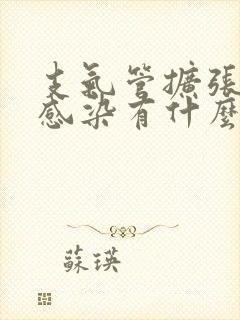 支氣管擴張
感染有什麼
蘇瑛